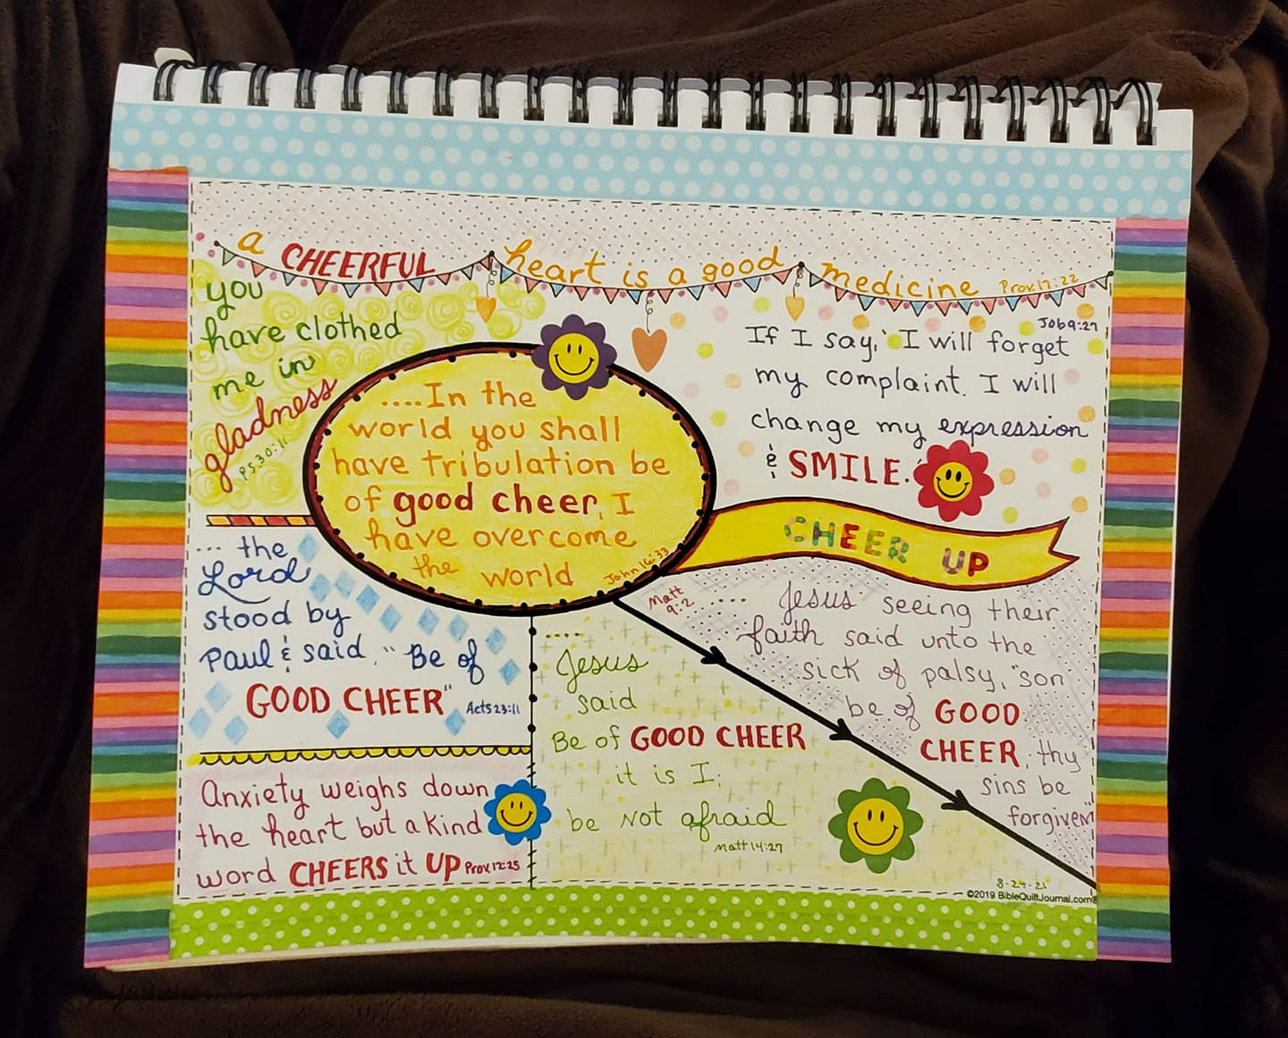 a CHEERFUL heart is a good medicine Prov. 17:22
you
have clothed
me in
gladness
PS. 30:11
....In the
world you shall
have tribulation be
of good cheer, I
have overcome
the world
John 16:33
Job 9:27
If I say, 'I will forget
my complaint. I will
change my expression
& SMILE.
CHEER UP
... the
Lord
stood by
Paul & said, "Be of
GOOD CHEER"
Acts 23:11
Anxiety weighs down
the heart but a kind
word CHEERS it UP Prov. 12:25
....
Jesus
said
Be of GOOD CHEER
it is I;
be not afraid
Matt 14:27
Matt
9:2
...... Jesus seeing their
faith said unto the
sick of palsy, "son
be of GOOD
CHEER, thy
sins be
forgiven
8-24-21
©2019 BibleQuiltJournal.com®